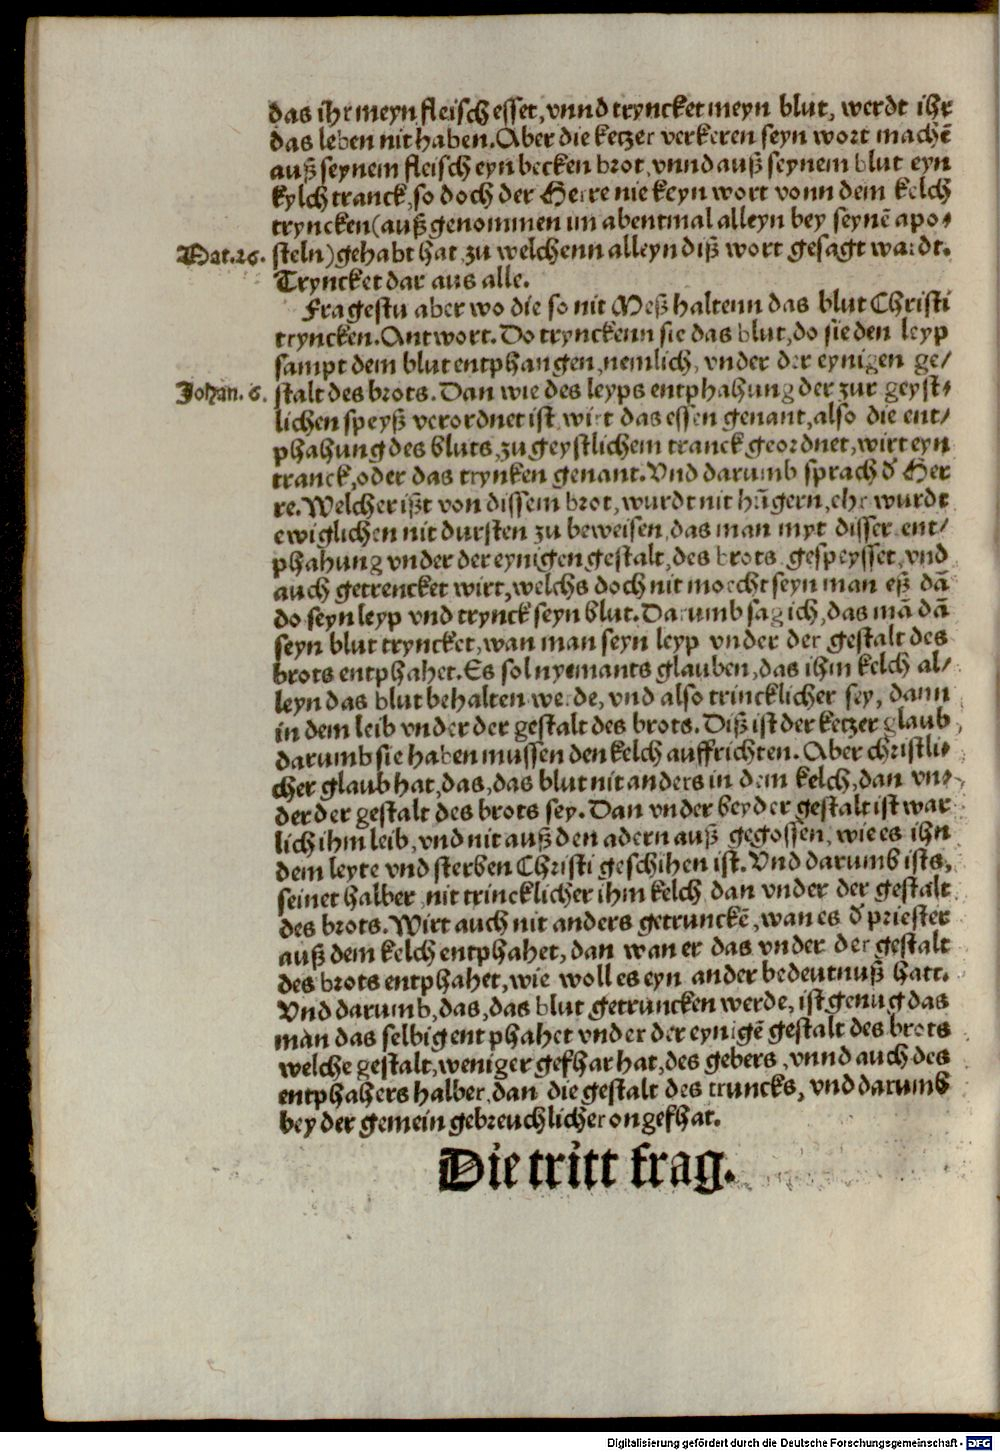 das ihr meyn fleisch esset, vnnd tryncket meyn blut, werdt ihr
das leben nit haben. Aber die ketzer verkeren seyn wort machē
auß seynem fleisch eyn becken brot, vnnd auß seynem blut eyn
kylch tranck, so doch der Herre nie keyn wort vonn dem kelch
tryncken (auß genommen im abentmal alleyn bey seynē apo-
Mat. 26. steln) gehabt hat, zu welchenn alleyn diß wort gesagt wardt.
Tryncket dar aus alle.
Fragestu aber wo die so nit Meß haltenn das blut Christi
tryncken. Antwort. Do trynckenn sie das blut, do sie den leyp
sampt dem blut entphangen, nemlich, vnder der eynigen ge/
Johan. 6. stalt des brots. Dan wie des leyps entphahung der zur geyst-
lichen speyß verordnet ist, wirt das essen genant, also die ent/
phahung des bluts, zu geystlichem tranck geordnet, wirt eyn
tranck, oder das trynken genant. Vnd darumb sprach d' Her
re. Welcher ißt von dissem brot, wurdt nit hūgern, ehr wurdt
ewiglichen nit dursten zu beweisen, das man myt disser ent/
phahung vnder der eynigen gestalt, des brots gespeysset, vnd
auch getrencket wirt, welchs doch nit moecht seyn man eß dā
do seyn leyp vnd trynck seyn blut. Darumb sag ich, das mā dā
seyn blut tryncket, wan man seyn leyp vnder der gestalt des
brots entphahet. Es sol nyemants glauben, das ihm kelch al/
leyn das blut behalten werde, vnd also trincklicher sey, dann
in dem leib vnder der gestalt des brots. Diß ist der ketzer glaub,
darumb sie haben mussen den kelch auffrichten. Aber christli-
cher glaub hat, das, das blut nit anders in dem kelch, dan vn-
der der gestalt des brots sey. Dan vnder beyder gestalt ist war
lich ihm leib, vnd nit auß den adern auß gegossen, wie es ihn
dem leyte vnd sterben Christi geschihen ist. Vnd darumb ists,
seinet halber nit trincklicher ihm kelch dan vnder der gestalt
des brots. Wirt auch nit anders getrunckē, wan es d' priester
auß dem kelch entphahet, dan wan er das vnder der gestalt
des brots entphahet, wie woll es eyn ander bedeutnuß hatt.
Vnd darumb, das, das blut getruncken werde, ist genug das
man das selbig entphahet vnder der eynigē gestalt des brots
welche gestalt, weniger gefhar hat, des gebers, vnnd auch des
entphahers halber, dan die gestalt des truncks, vnd darumb
bey der gemein gebreuchlicher on gefhat.
Die tritt frag.
Digitalisierung gefördert durch die Deutsche Forschungsgemeinschaft - DFG